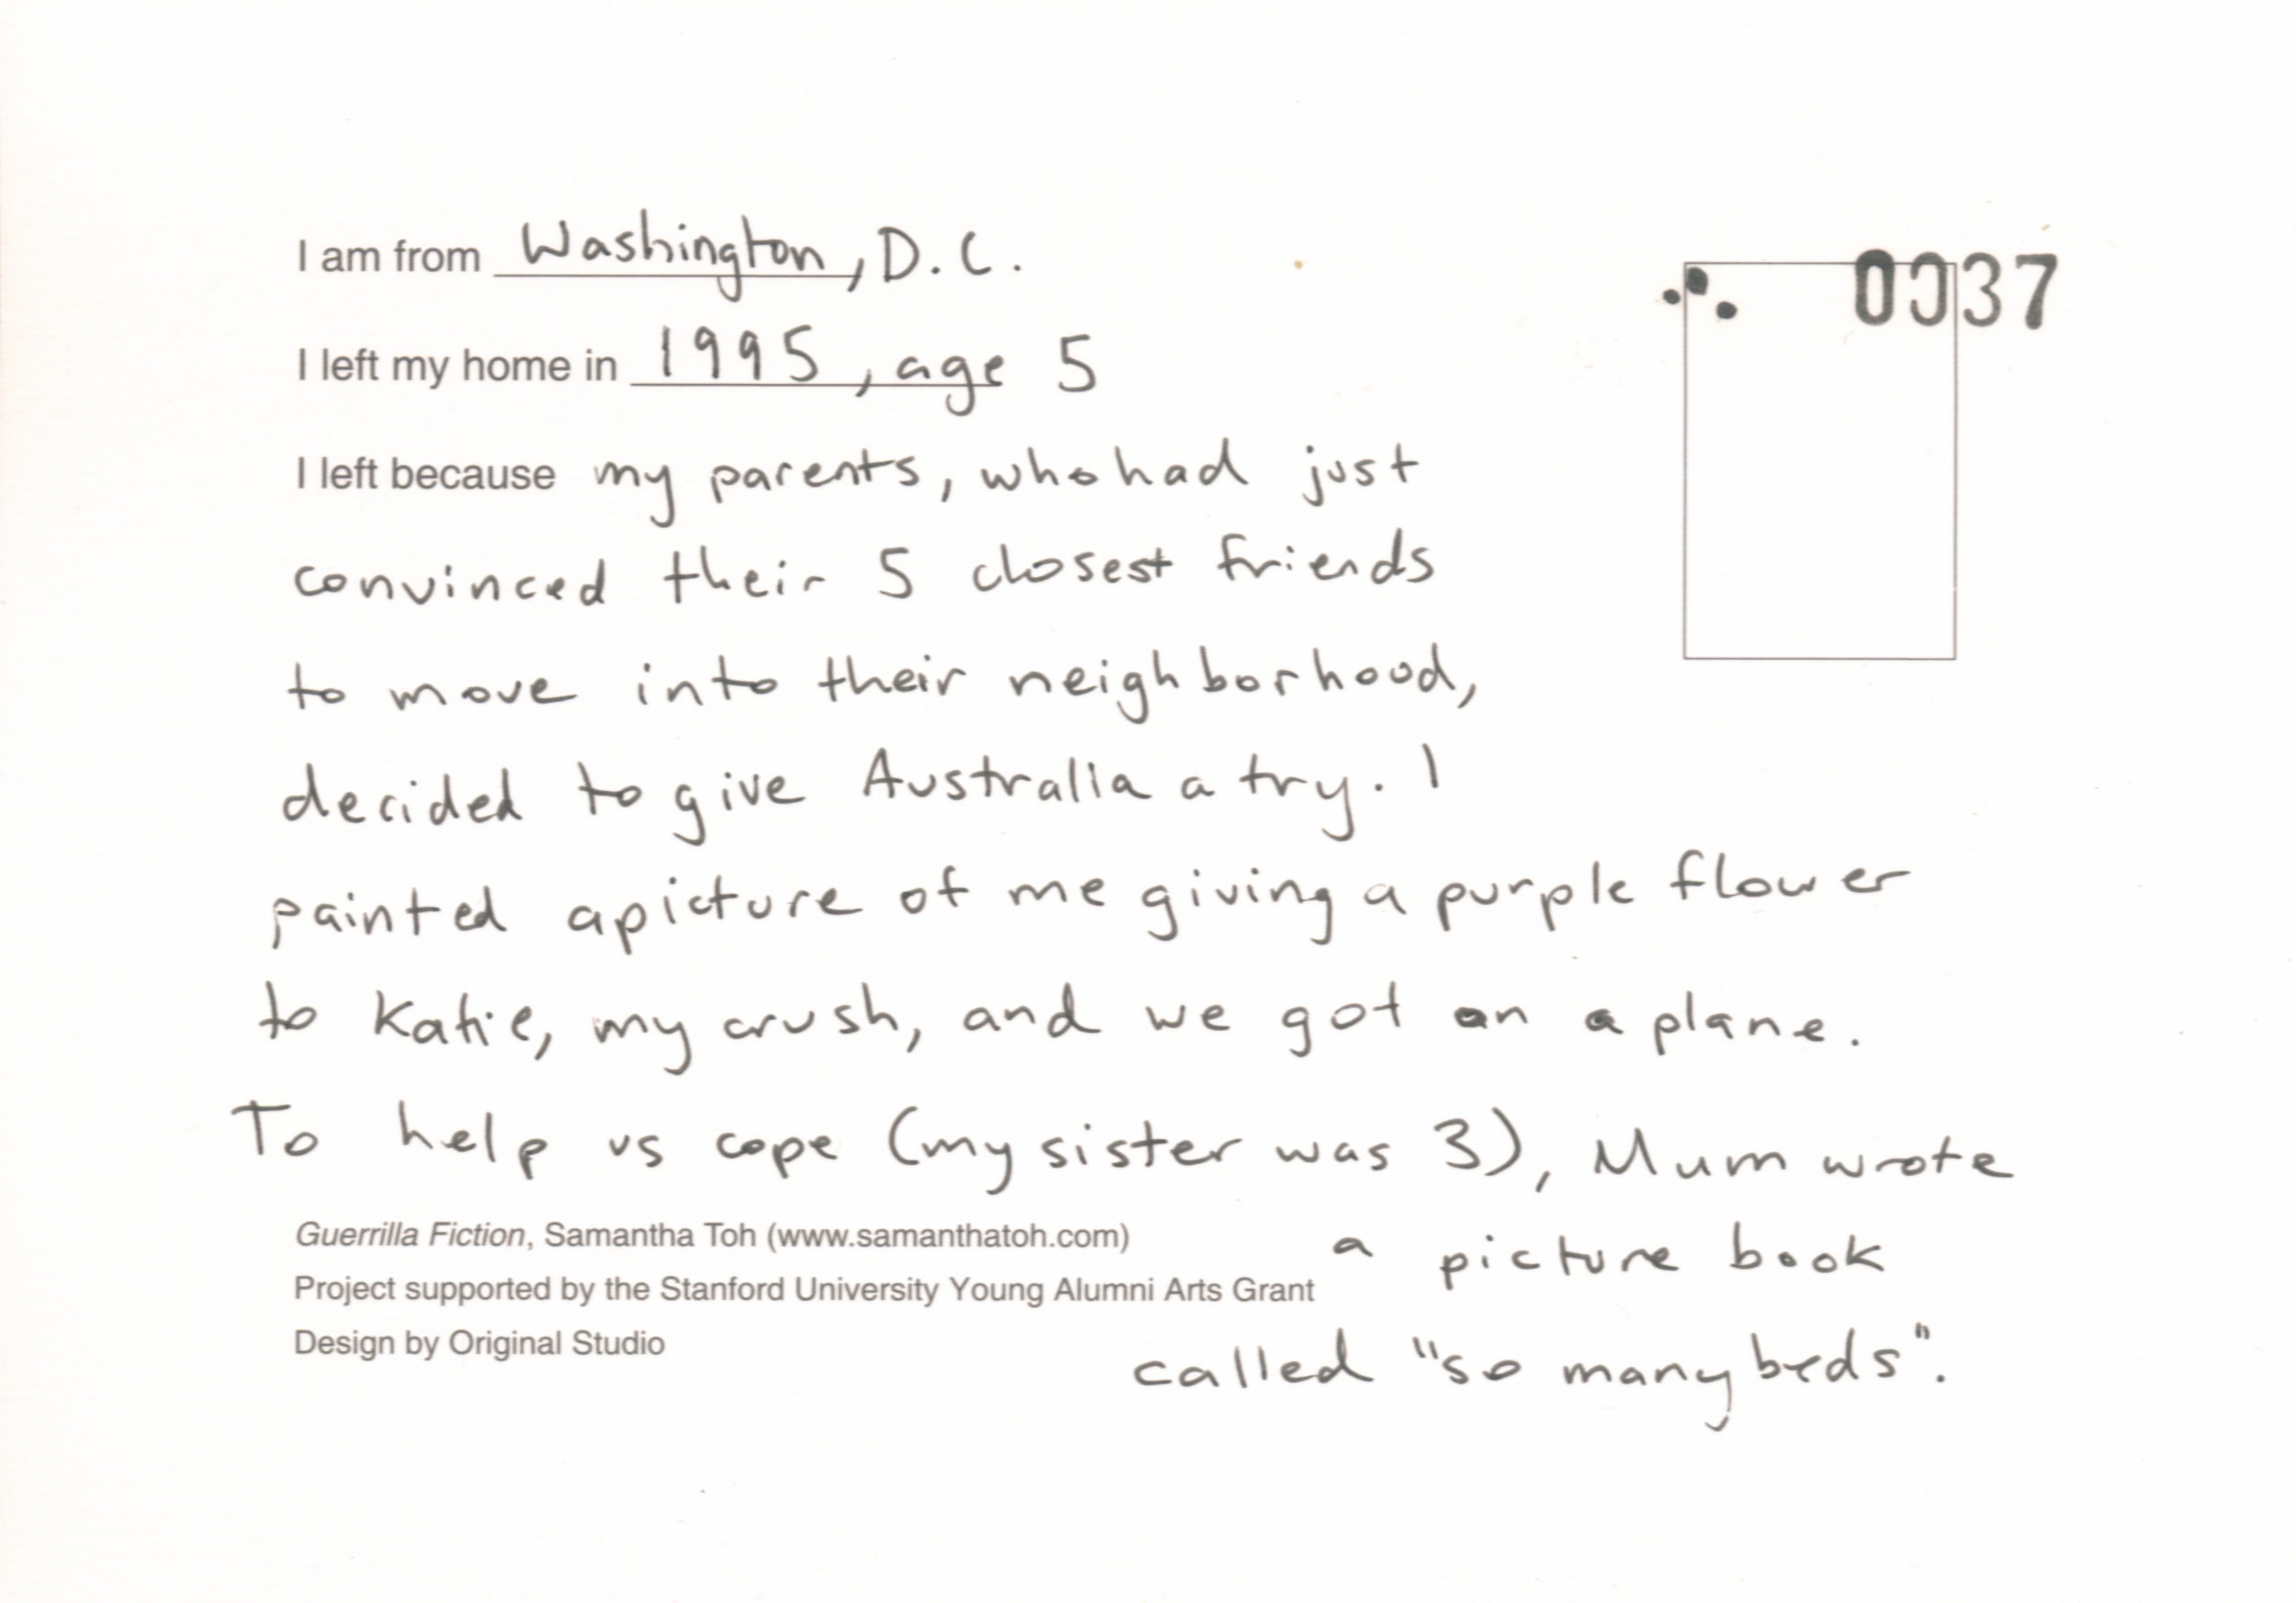 I am from Washington, D.C.
0037
I left my home in 1995, age 5
I left because my parents, who had just
convinced their 5 closest friends
to move into their neighborhood,
decided to give Australia a try. I
painted a picture of me giving a purple flower
to Katie, my crush, and we got on a plane.
To help us cope (my sister was 3), Mum wrote
a picture book
called "so many beds".
Guerrilla Fiction, Samantha Toh (www.samanthatoh.com)
Project supported by the Stanford University Young Alumni Arts Grant
Design by Original Studio